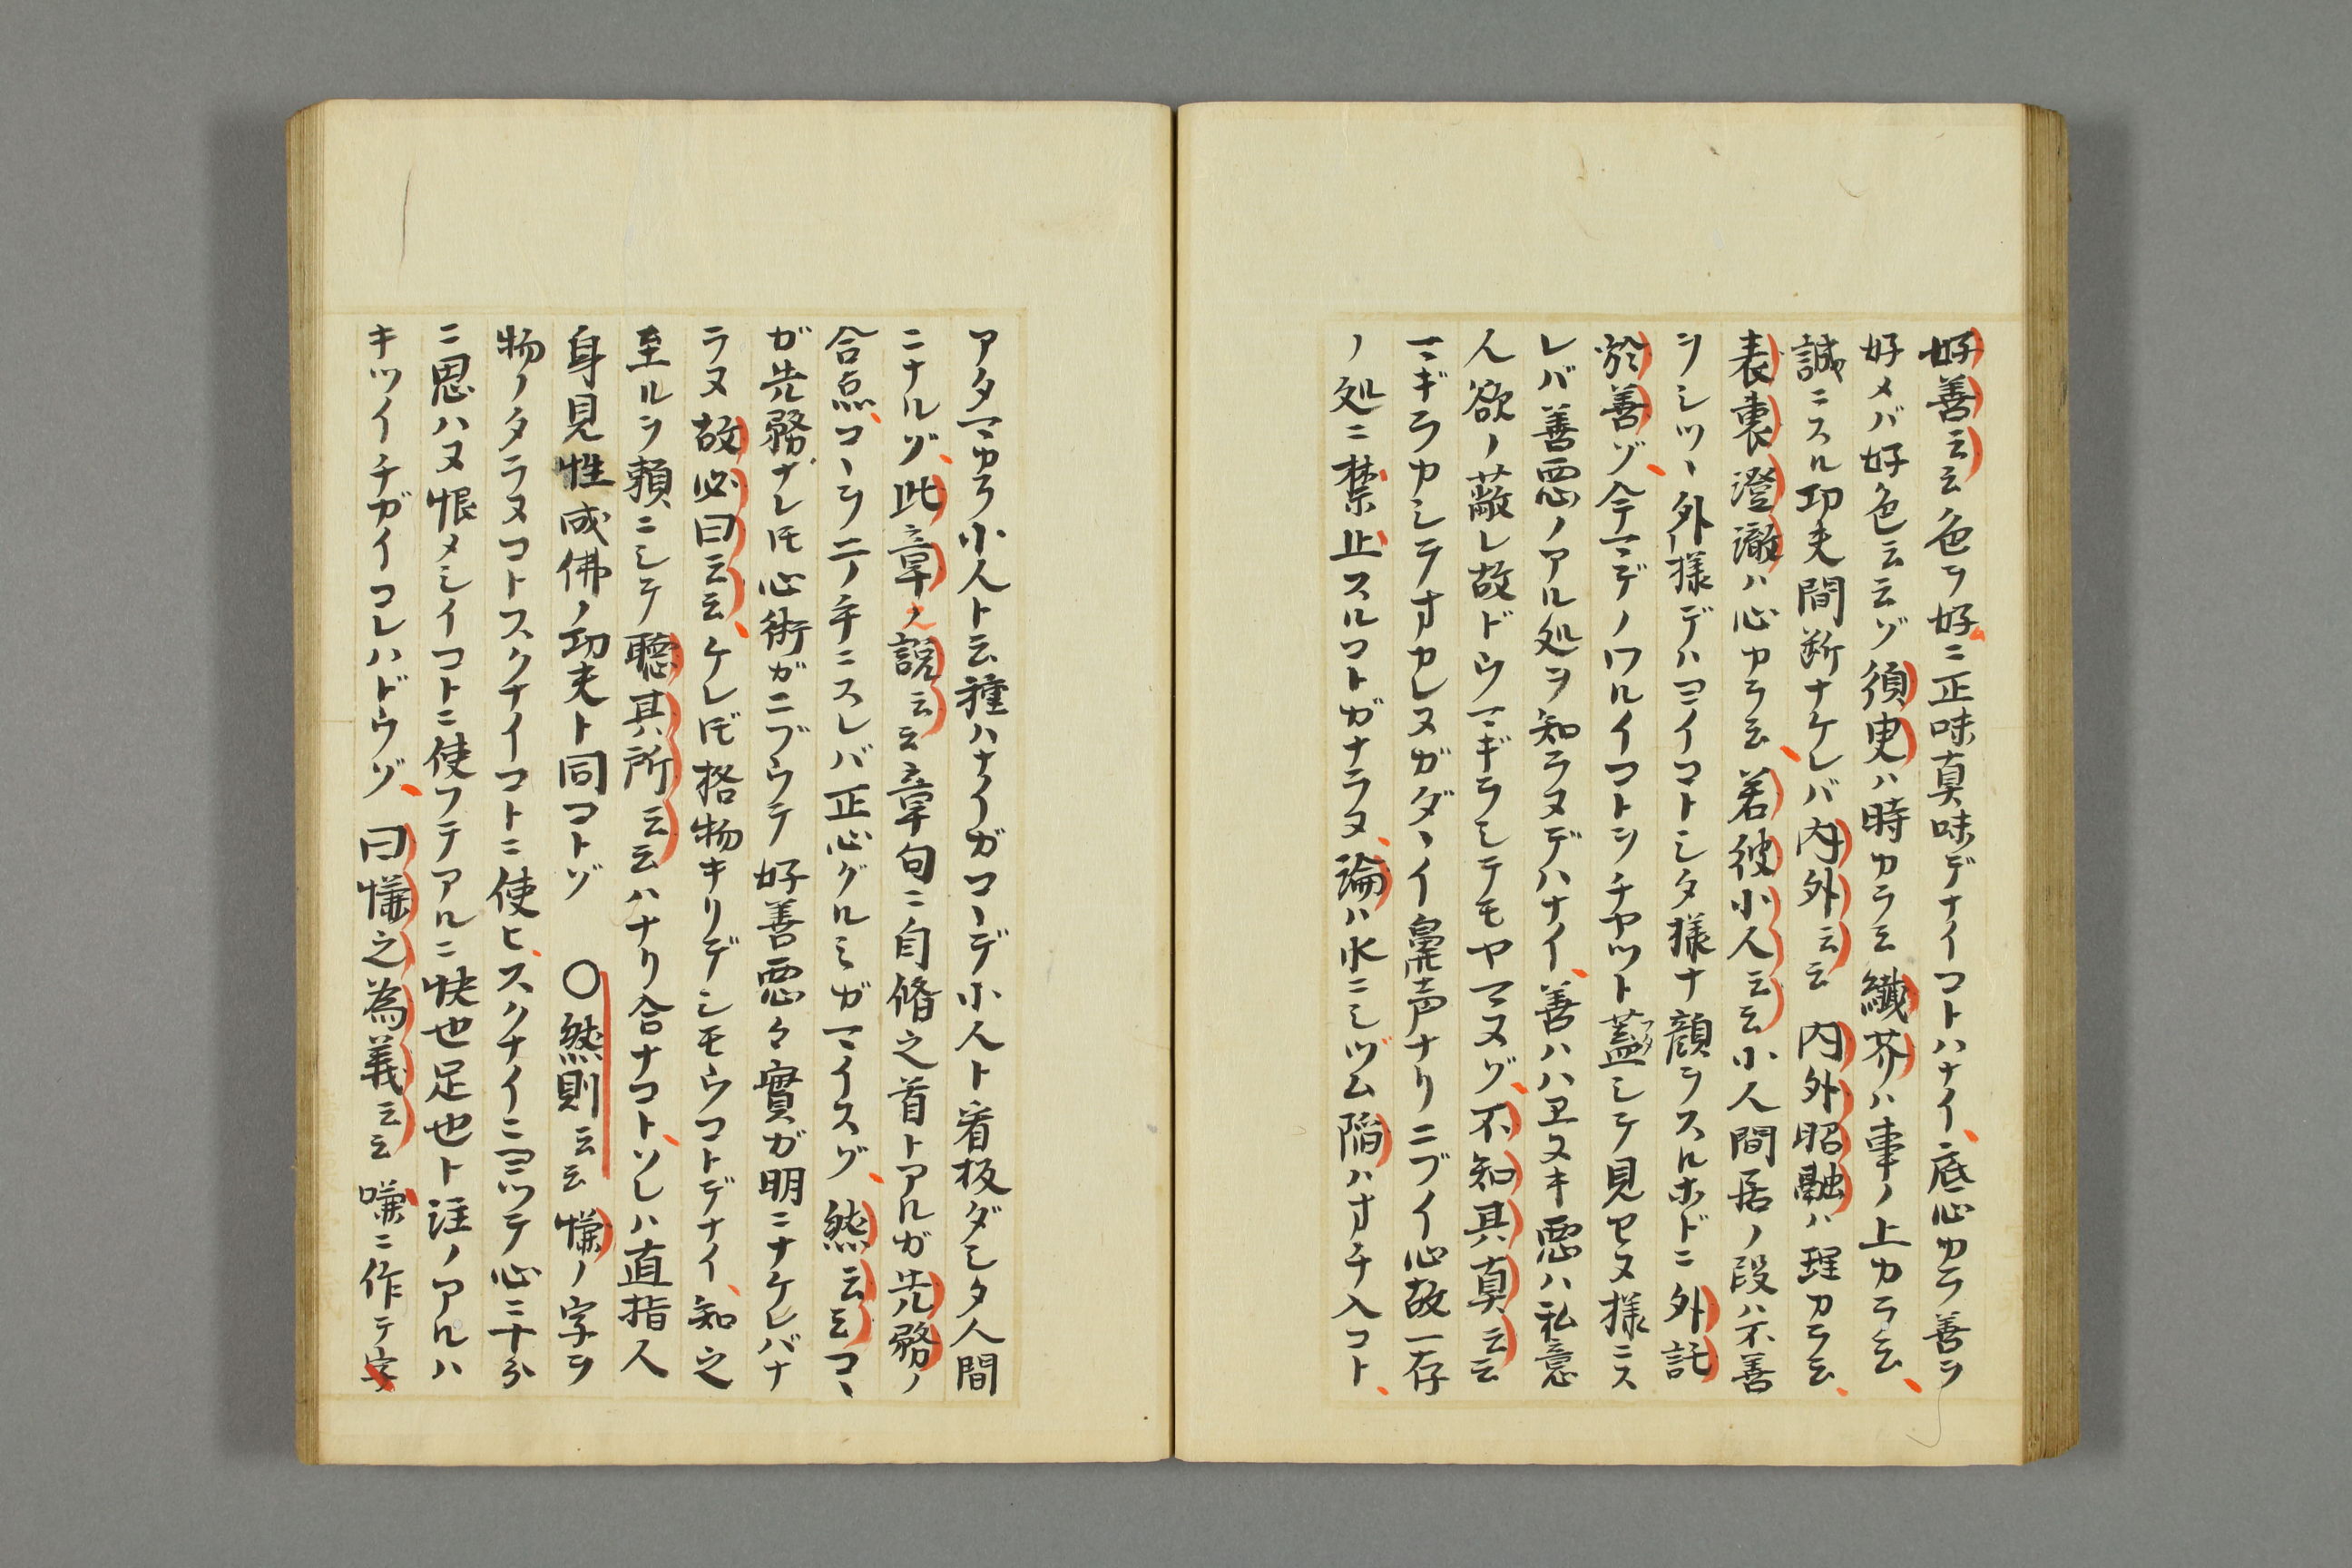 好善云云色ヲ好ニ正味真味デナイコトハナイ、底心カラ善ヲ
好メバ好色云云ゾ須臾ハ時カラ云纎芥ハ事ノ上カラ云、
誠ニスル功夫間断ナケレバ内外云云内外昭融ハ理カラ云、
表裏澄澈ハ心カラ云、若彼小人云云小人間居ノ段ハ不善
ヲシツヽ外様デハヨイコトシタ様ナ顔ヲスルホドニ外託
於善ゾ、今マデノワルイコトヲチヤツト蓋シテ見セヌ様ニス
レバ善悪ノアル処ヲ知ラヌデハナイ、善ハハヱヌキ悪ハ私意
人欲ノ蔽レ故ドウマギラシテモヤマヌゾ、不知其真云云
マギラカシテオカレヌガダヽイ鼻声ナリニブイ心故一存
ノ処ニ禁止スルコトガナラヌ、論ハ水ニシヅム陥ハオチ入コト、
アタマカラ小人ト云種ハナイガコヽデ小人ト看板ダシタ人間
ニナルゾ、此章ノ説云云章句ニ自脩之首トアルガ先務ノ
合点、コヽヲ二ノ手ニスレバ正心グルミガマイスゾ、然云云コヽ
ガ先務ナレ𪜈心術ガニブウテ好善悪々實ガ明ニナケレバナ
ラヌ故必曰云云、ケレ𪜈格物キリデシモウコトデナイ、知之
至ルヲ頼ニシテ聴其所云云ハナリ合ナコト、ソレハ直指人
身見性成佛ノ功夫ト同コトゾ　〇然則云云慊ノ字ヲ
物ノタラヌコトスクナイコトニ使ヒ、スクナイニヨツテ心ニ十分
ニ思ハヌ恨メシイコトニ使フテアルニ快也足也ト註ノアルハ
キツイチガイコレハドウゾ、曰慊之為義云云嗛ニ作テ字